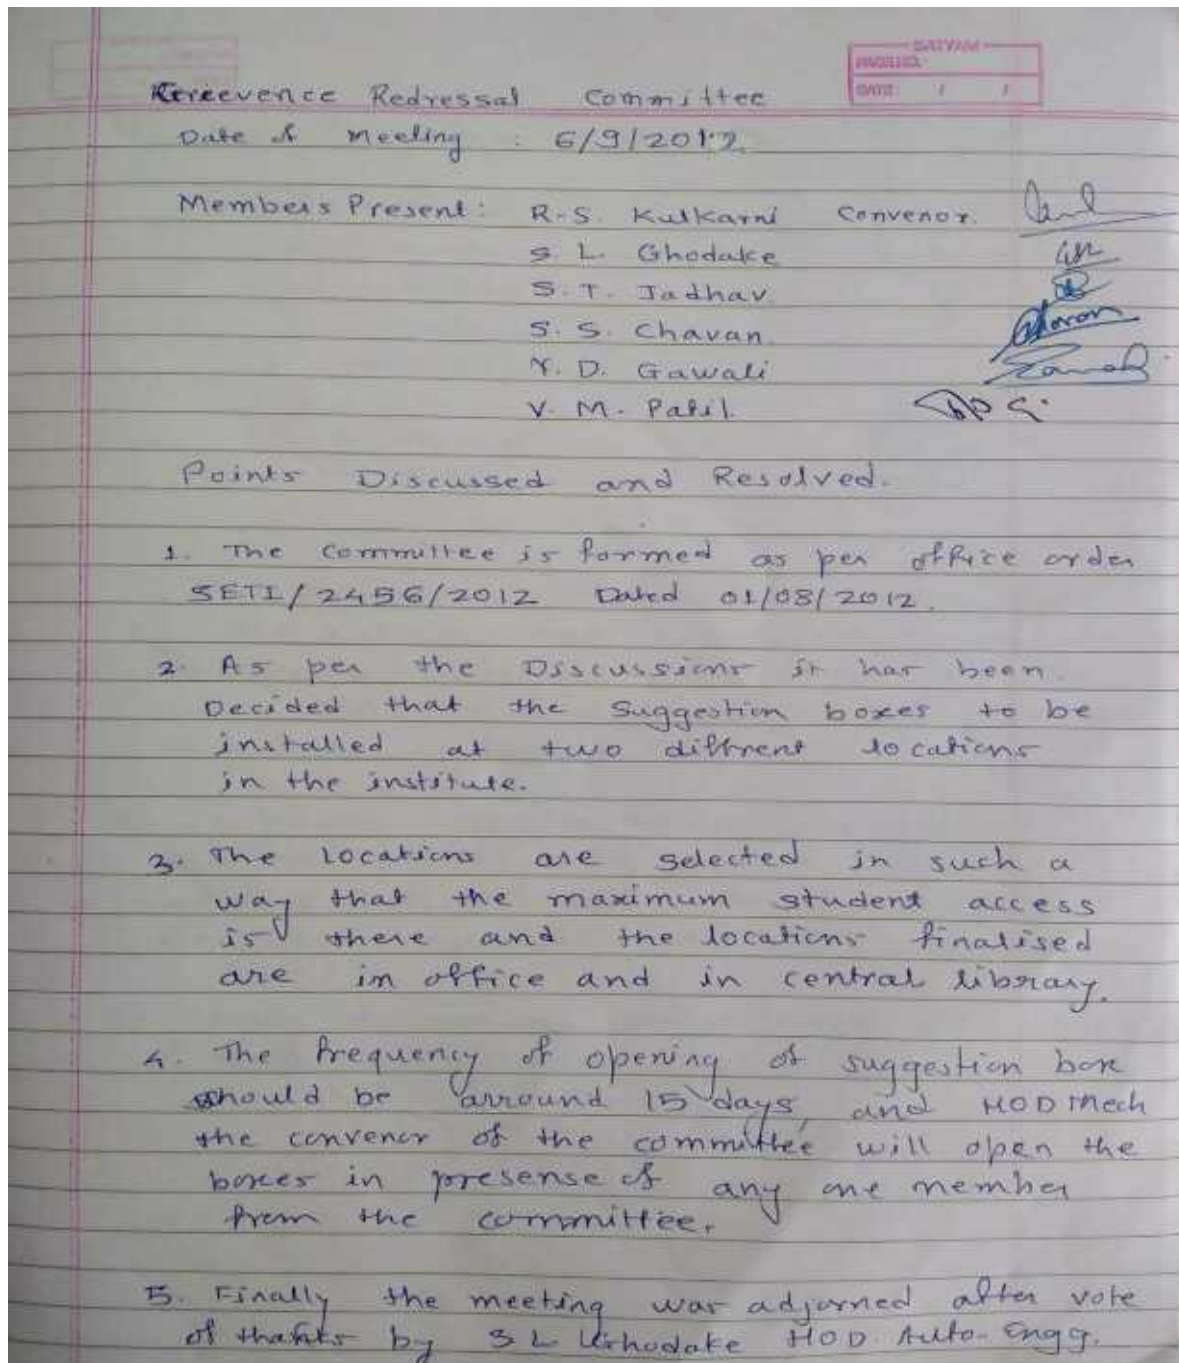 SATYAM
PAGE NO.
DATE: / /
Greevence Redressal Committee
Date of Meeting : 6/9/2012.
Members Present: R.S. Kulkarni Convenor.
S. L. Ghodake
S. T. Jadhav.
S. S. Chavan.
Y. D. Gawali
V. M. Patil.
Points Discussed and Resolved.
1. The Committee is formed as per office order
SETI/2456/2012 Dated 01/08/2012.
2. As per the Discussions it has been
Decided that the Suggestion boxes to be
installed at two diffrent locations
in the institute.
3. The Locations are selected in such a
way that the maximum student access
is there and the locations finalised
are in office and in central library.
4. The frequency of opening of suggestion box
should be arround 15 days, and HOD Mech
the convenor of the committee will open the
boxes in presense of any one member
from the committee.
5. Finally the meeting was adjorned after vote
of thanks by S L Ghodake HOD Auto. Engg.